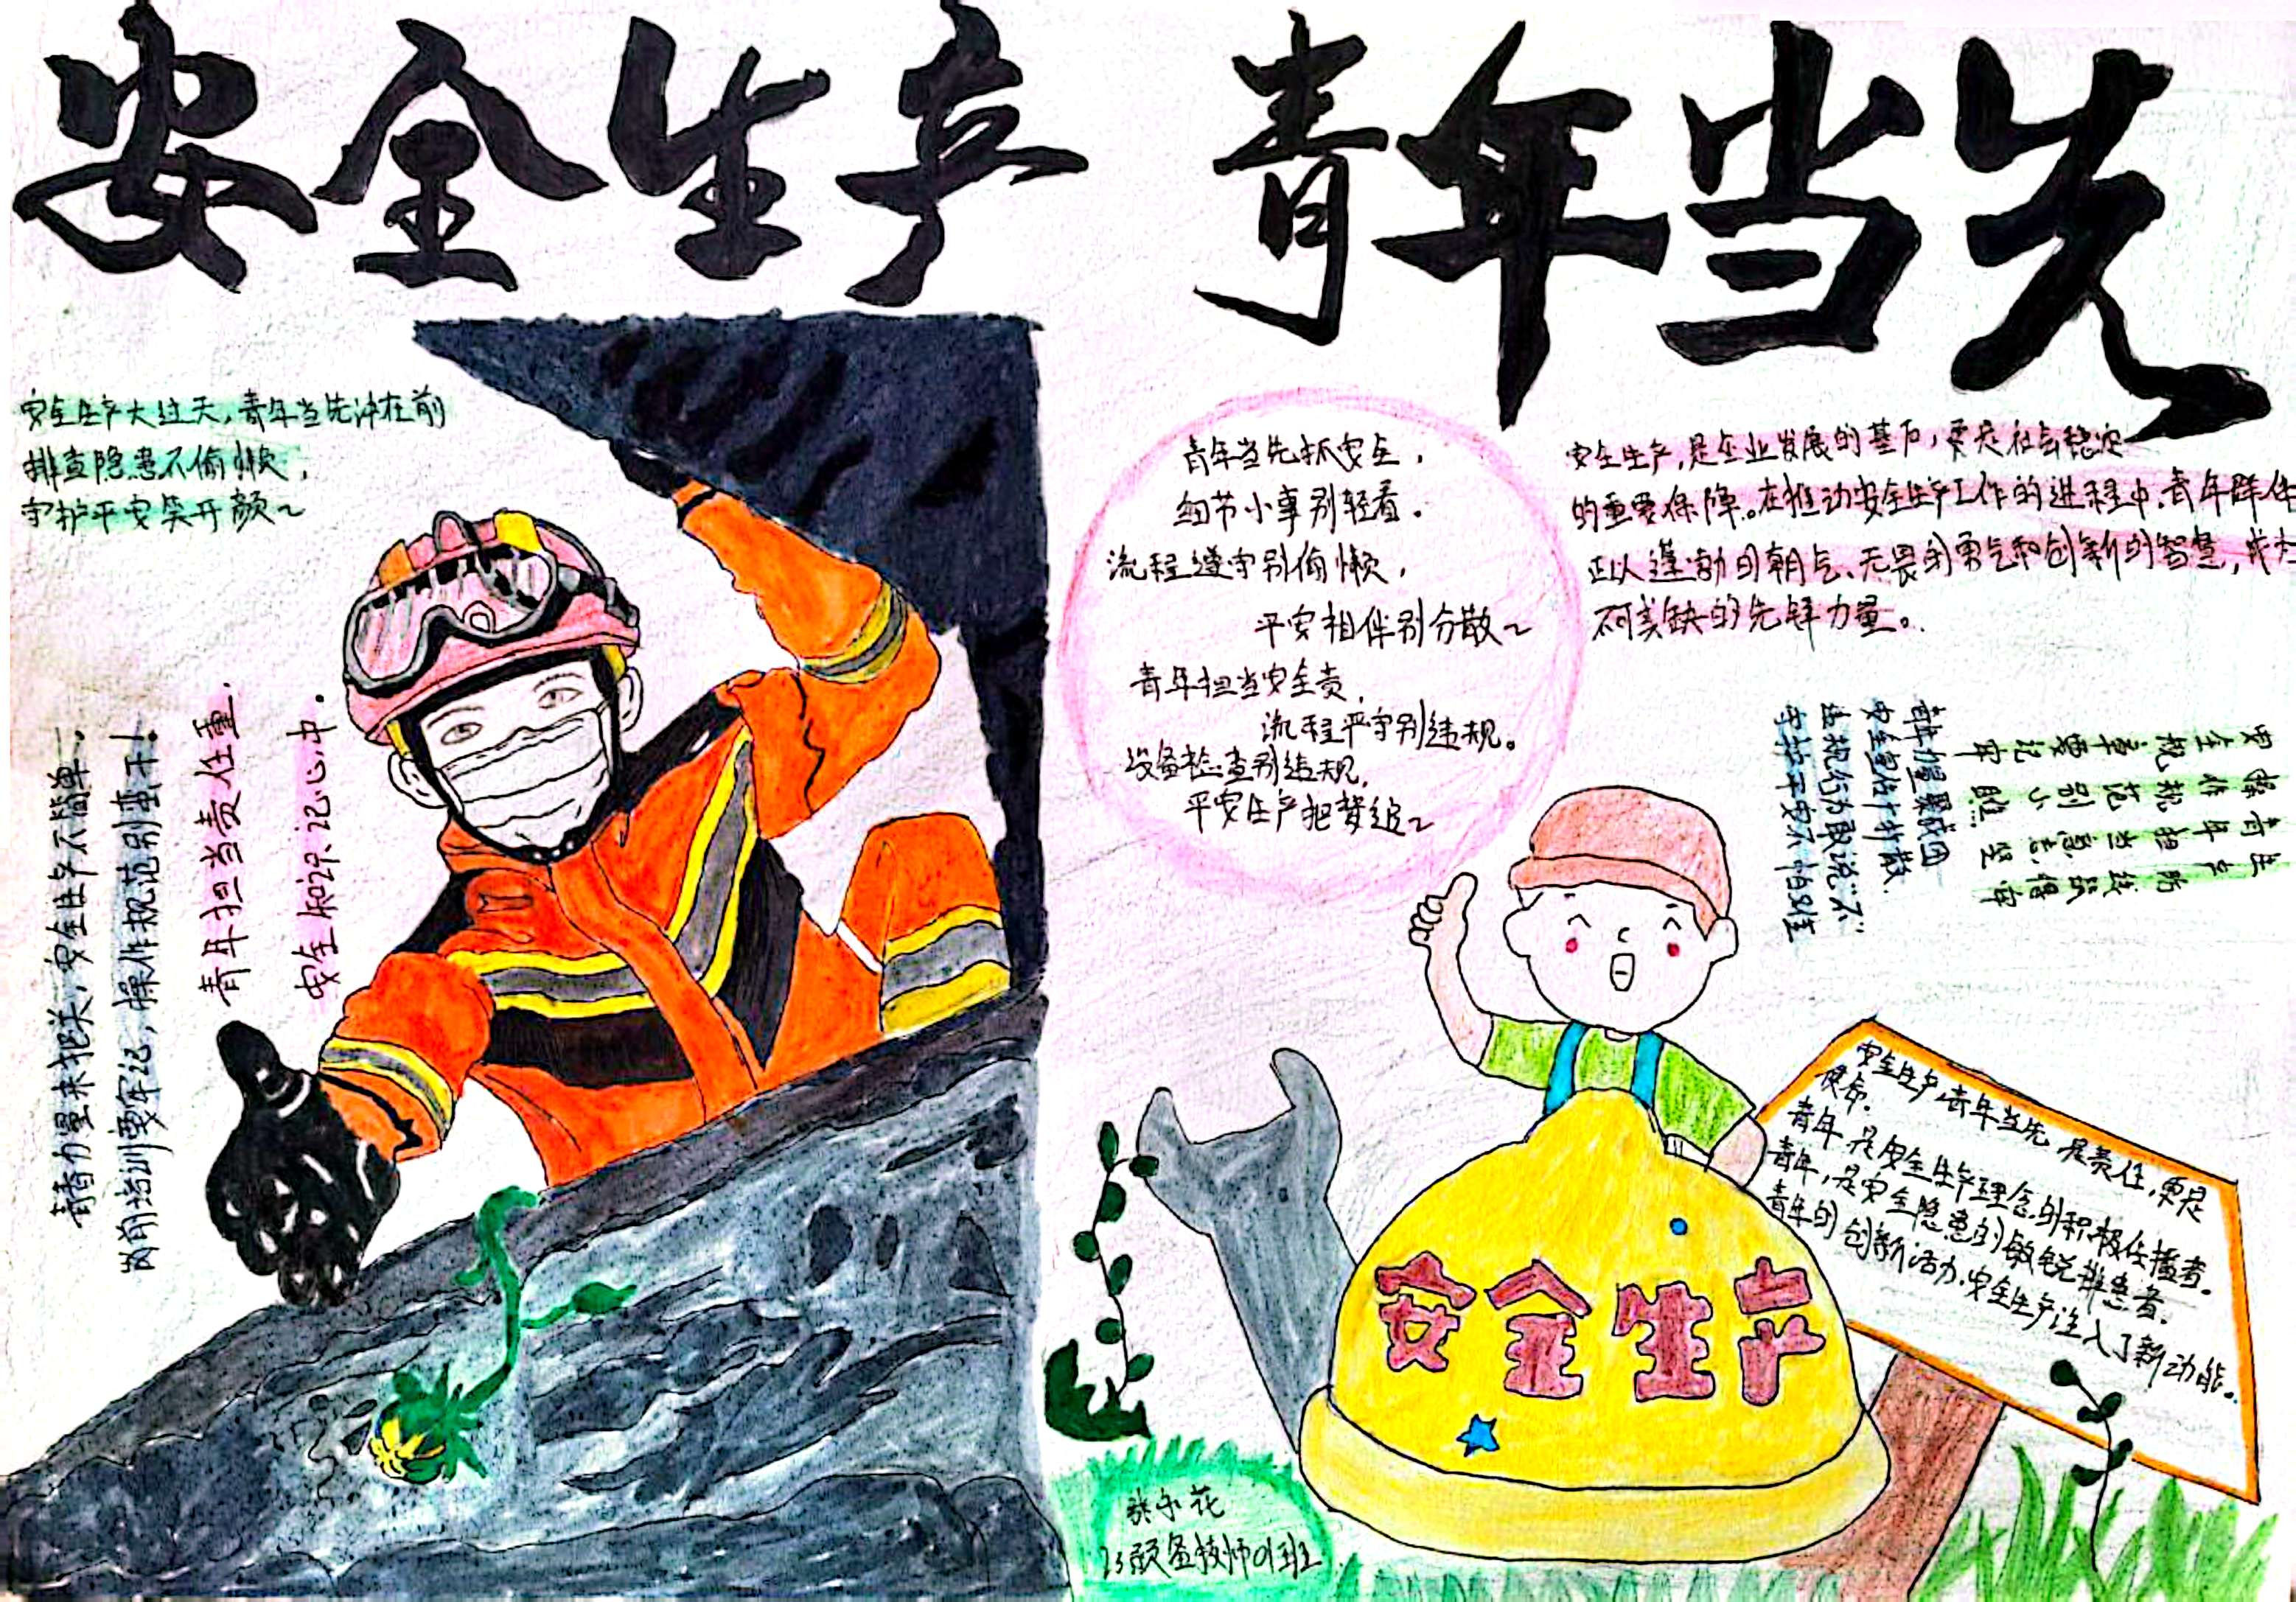 安全生产 青年当先
安全生产大过天，青年当先冲在前
排查隐患不偷懒，
守护平安笑开颜~
青春力量来把关，安全生产不简单。
岗前培训要牢记，操作规范别蛮干！
青年担当责任重，
安全知识记心中。
青年当先抓安全，
细节小事别轻看。
流程遵守别偷懒，
平安相伴别分散~
青年担当安全责，
流程严守别违规。
设备检查别违规，
平安生产把梦追~
安全生产，是企业发展的基石，更是社会稳定
的重要保障。在推动安全生产工作的进程中，青年群体
正以蓬勃的朝气、无畏的勇气和创新的智慧，成为
不可或缺的先锋力量。
青年力量聚成团
安全宣传不打散
违规行为敢说“不”
守护平安不怕难
安全规章要记牢
操作规范别小瞧
青年担当意志坚
安全生产
安全生产，青年当先，是责任，更是
使命。
青年，是安全生产理念的积极传播者。
青年，是安全隐患的敏锐排患者。
青年的创新活力，安全生产注入了新动能。
23预备技师01班